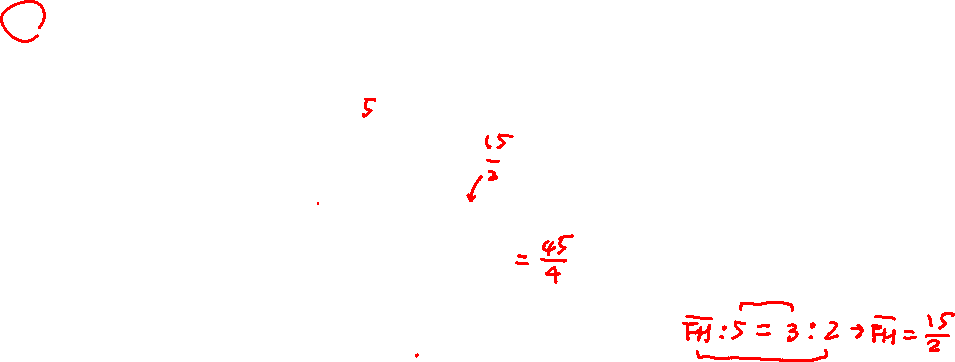 5
15/2
= 45/4
F̅H̅ : 5 = 3 : 2 → F̅H̅ = 15/2